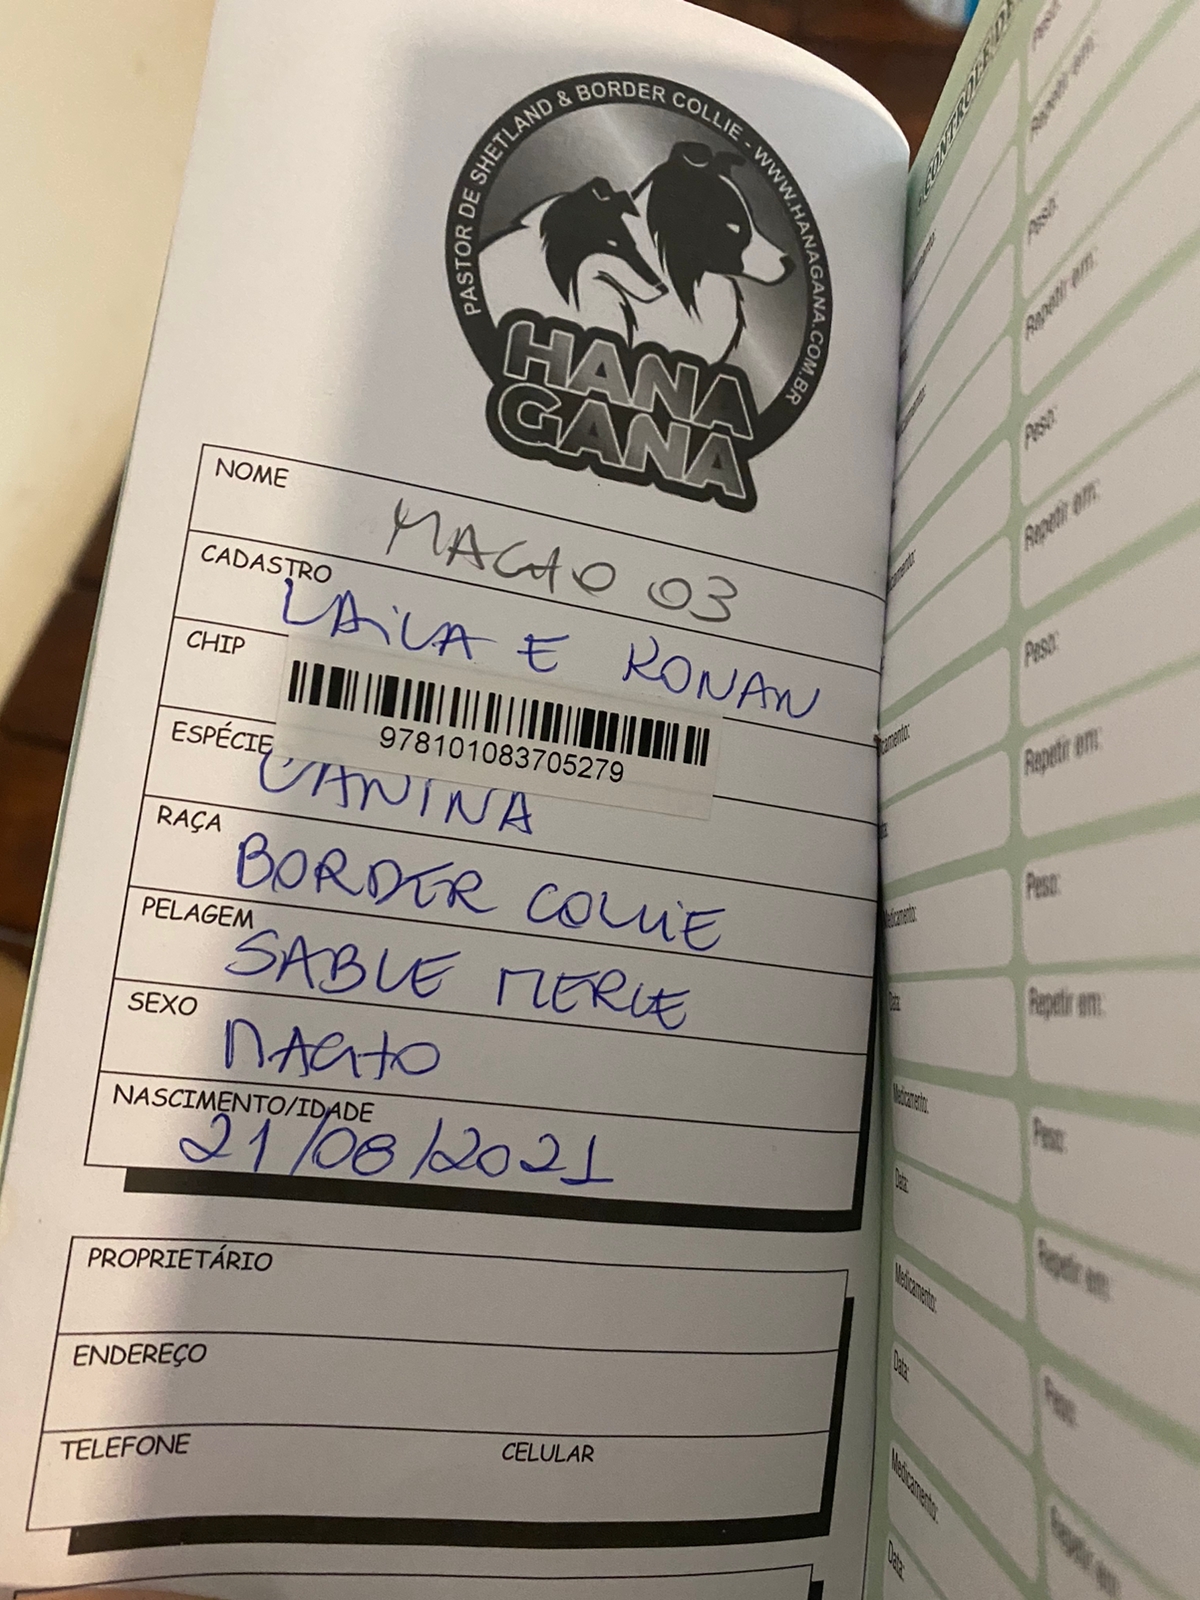 PASTOR DE SHETLAND & BORDER COLLIE - WWW.HANAGANA.COM.BR
HANA
GANA
NOME
MACHO 03
CADASTRO
LAILA E RONAN
CHIP
978101083705279
ESPÉCIE
CANINA
RAÇA
BORDER COLLIE
PELAGEM
SABLE MERLE
SEXO
MACHO
NASCIMENTO/IDADE
21/08/2021
PROPRIETÁRIO
ENDEREÇO
TELEFONE CELULAR
Peso:
Repetir em:
Peso:
Repetir em:
Peso:
Repetir em:
Peso:
Repetir em:
Peso:
Medicamento:
Data: Repetir em:
Medicamento: Peso:
Data: Repetir em:
Medicamento: Peso:
Data: Repetir em:
Medicamento:
Data: